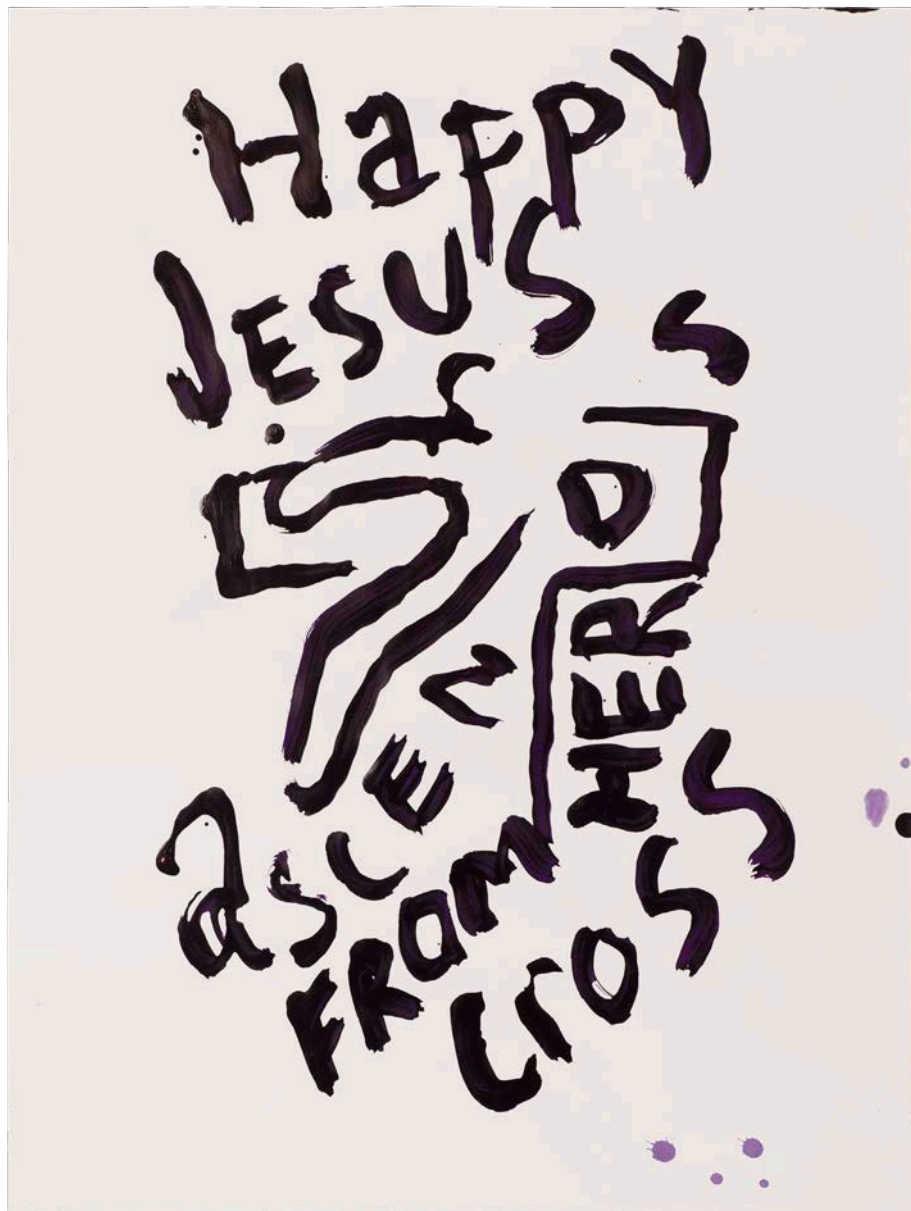 Happy
JESUS
ascen
FROM HER
CrOSS